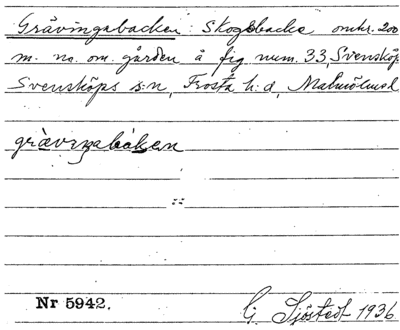 Grävingabacken: Skogsbacke omkr. 200
m. no. om. gården å fig. num. 33, Svensköp
Svensköps s:n, Frosta h:d, Malmöhusl.
gräviŋabaken
Nr 5942.
G. Sjöstedt 1936